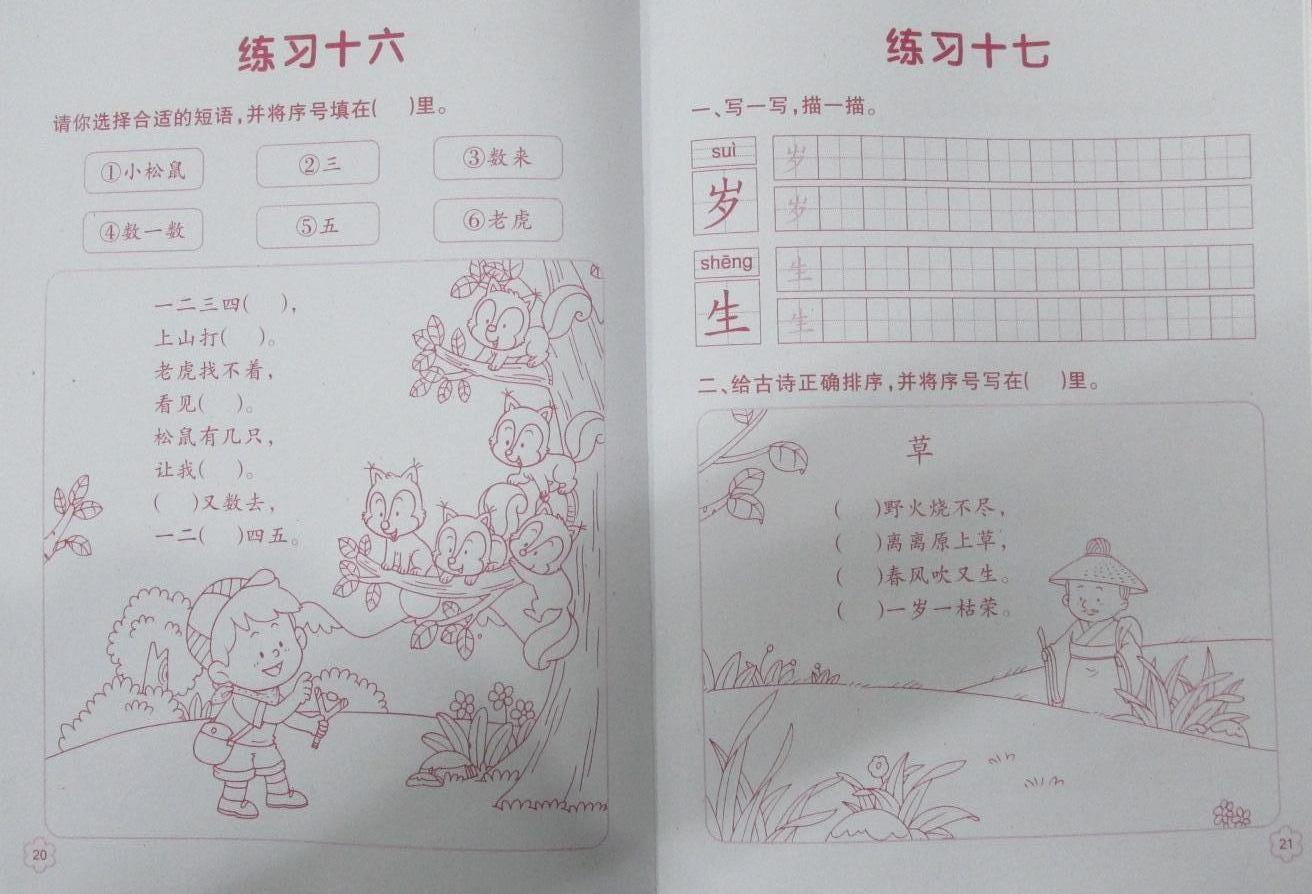 练习十六
请你选择合适的短语,并将序号填在(　)里。
①小松鼠 ②三 ③数来
④数一数 ⑤五 ⑥老虎
一二三四(　),
上山打(　)。
老虎找不着,
看见(　)。
松鼠有几只,
让我(　)。
(　)又数去,
一二(　)四五。
20
练习十七
一、写一写,描一描。
suì
岁 岁
岁
shēng
生 生
生
二、给古诗正确排序,并将序号写在(　)里。
草
(　)野火烧不尽,
(　)离离原上草,
(　)春风吹又生。
(　)一岁一枯荣。
21